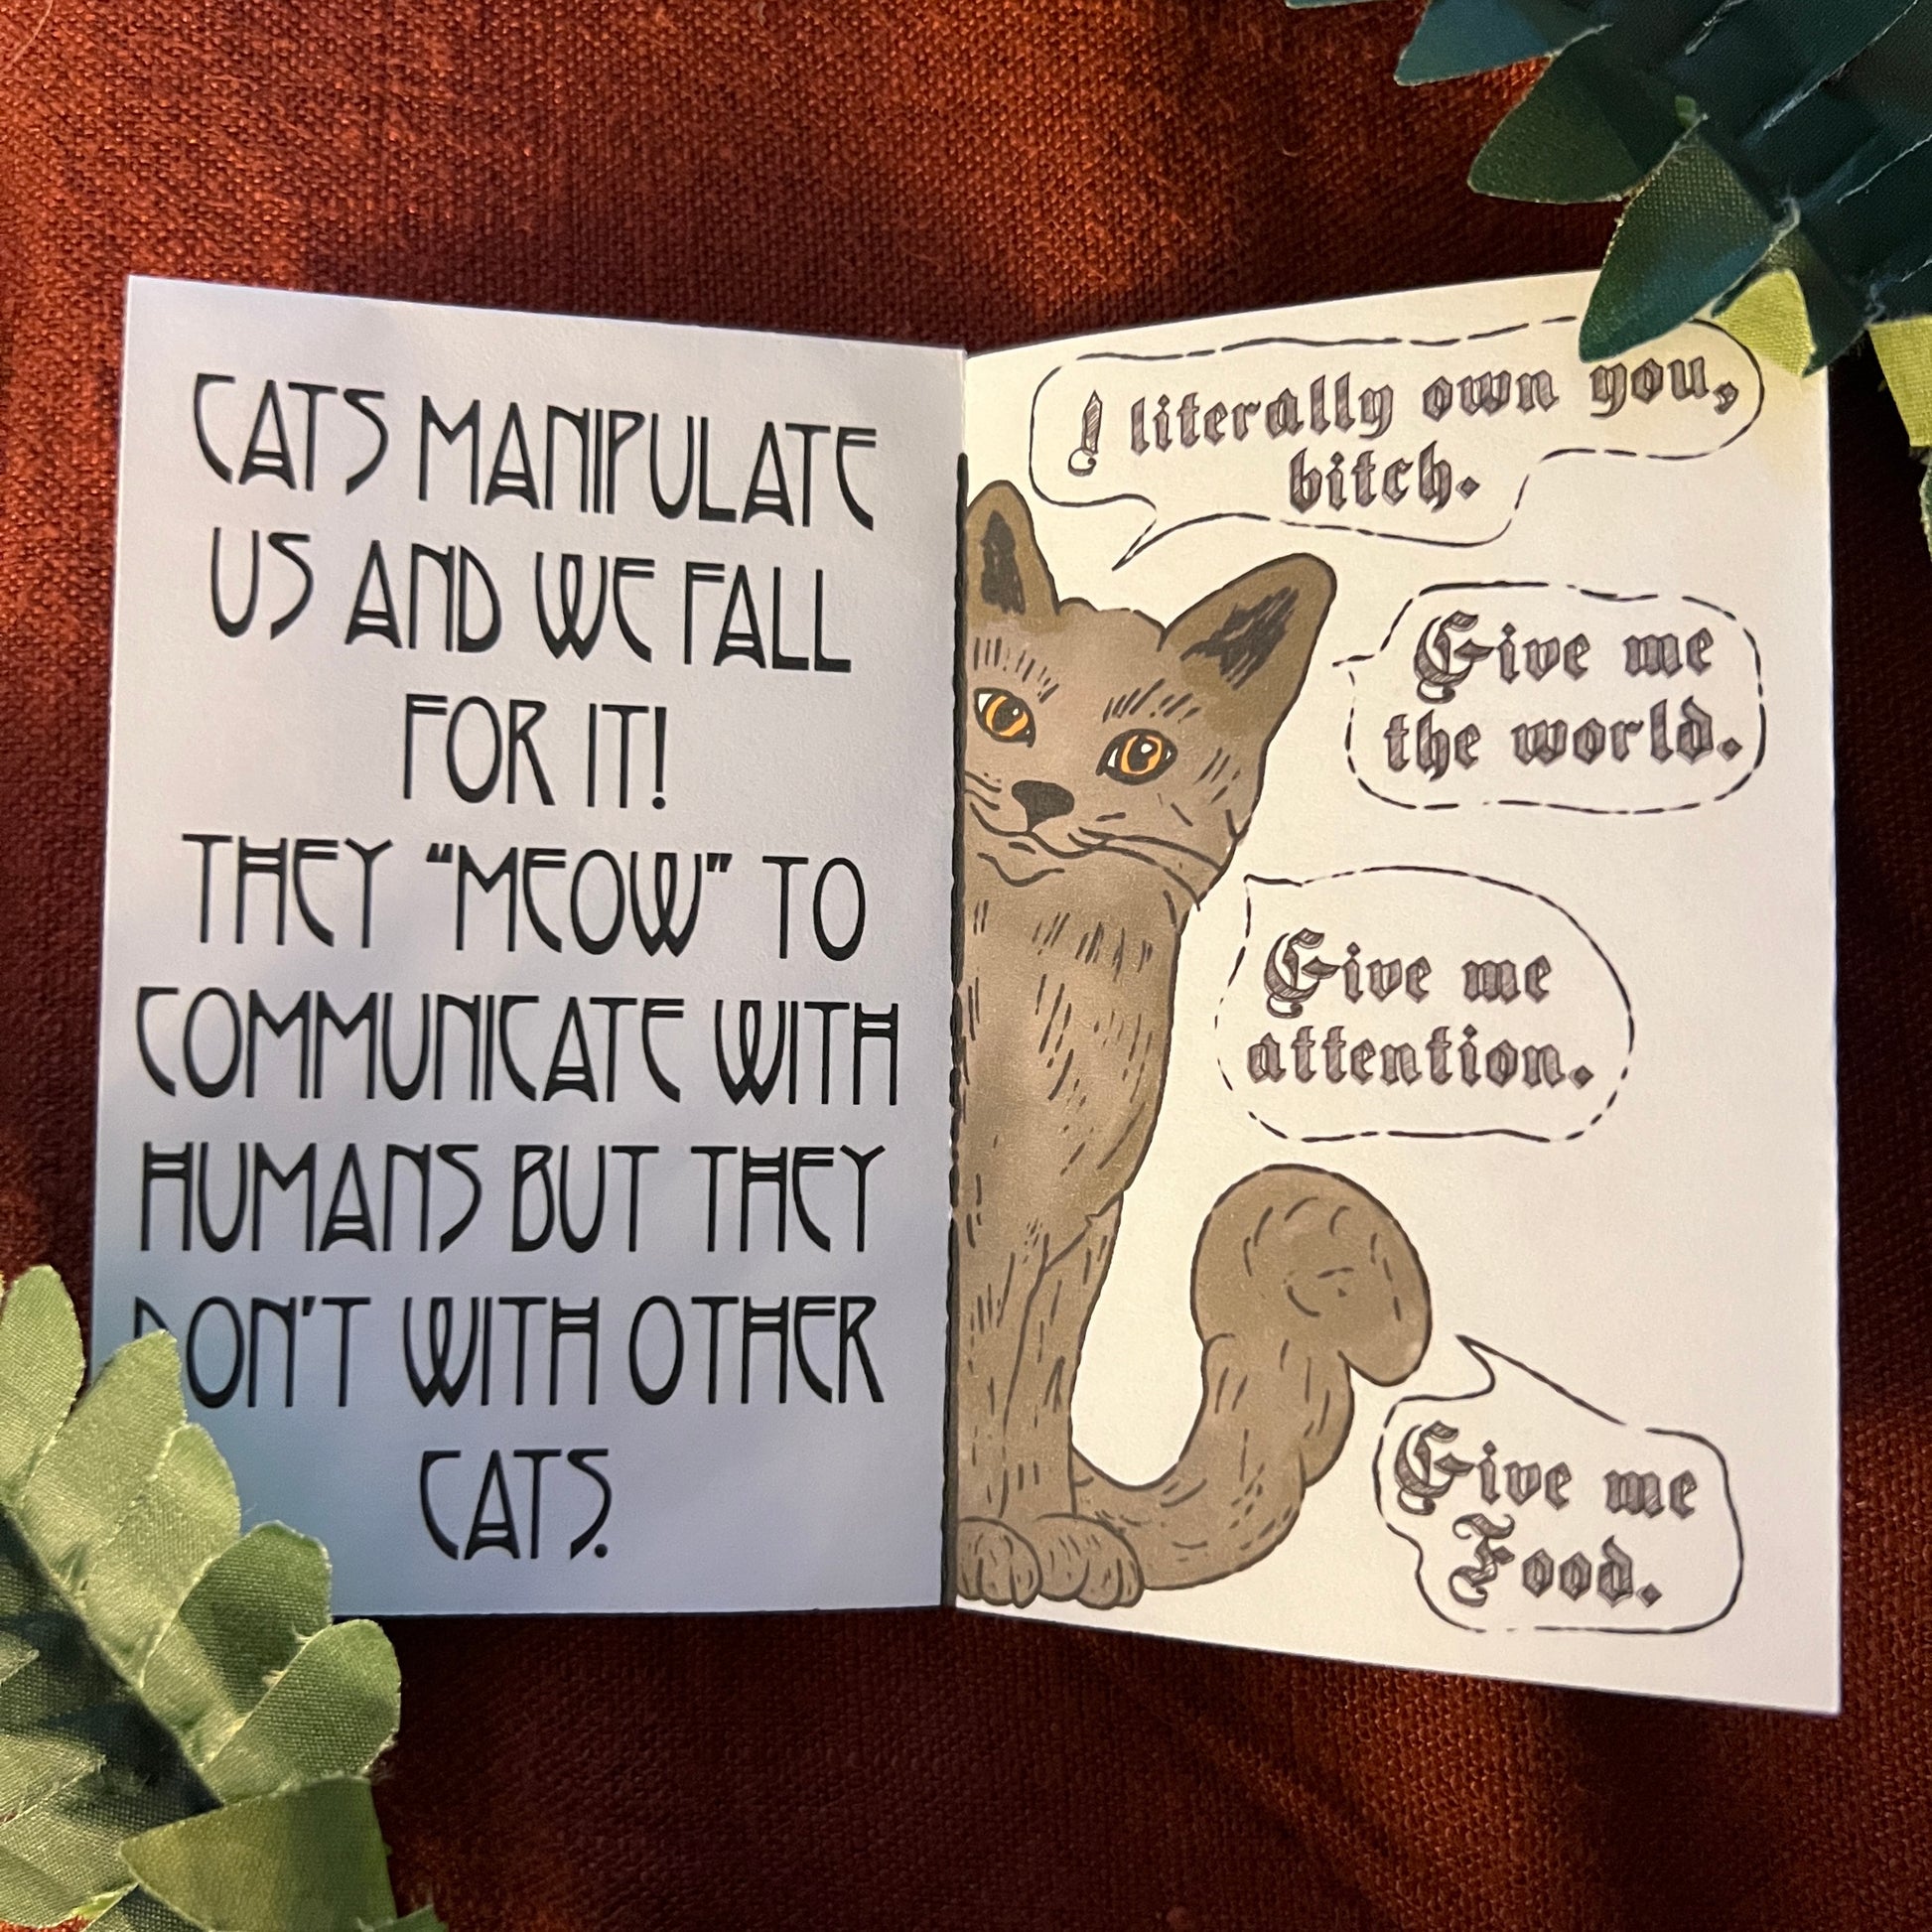 CATS MANIPULATE
US AND WE FALL
FOR IT!
THEY “MEOW” TO
COMMUNICATE WITH
HUMANS BUT THEY
DON'T WITH OTHER
CATS.
I literally own you,
bitch.
Give me
the world.
Give me
attention.
Give me
Food.